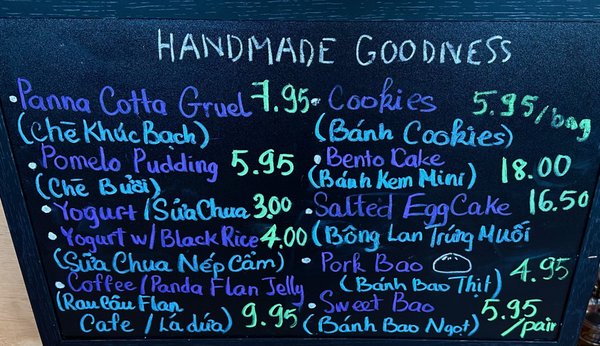 HANDMADE GOODNESS
• Panna Cotta Gruel 7.95
(Chè Khúc Bạch)
• Pomelo Pudding 5.95
(Chè Bưởi)
• Yogurt / Sữa Chua 3.00
• Yogurt w/ Black Rice 4.00
(Sữa Chua Nếp Cẩm)
• Coffee / Panda Flan Jelly
(Rau Câu Flan
Cafe / Lá dứa) 9.95
• Cookies 5.95/bag
(Bánh Cookies)
• Bento Cake 18.00
(Bánh Kem Mini)
• Salted Egg Cake 16.50
(Bông Lan Trứng Muối
• Pork Bao 4.95
(Bánh Bao Thịt)
• Sweet Bao 5.95
(Bánh Bao Ngọt) /pair